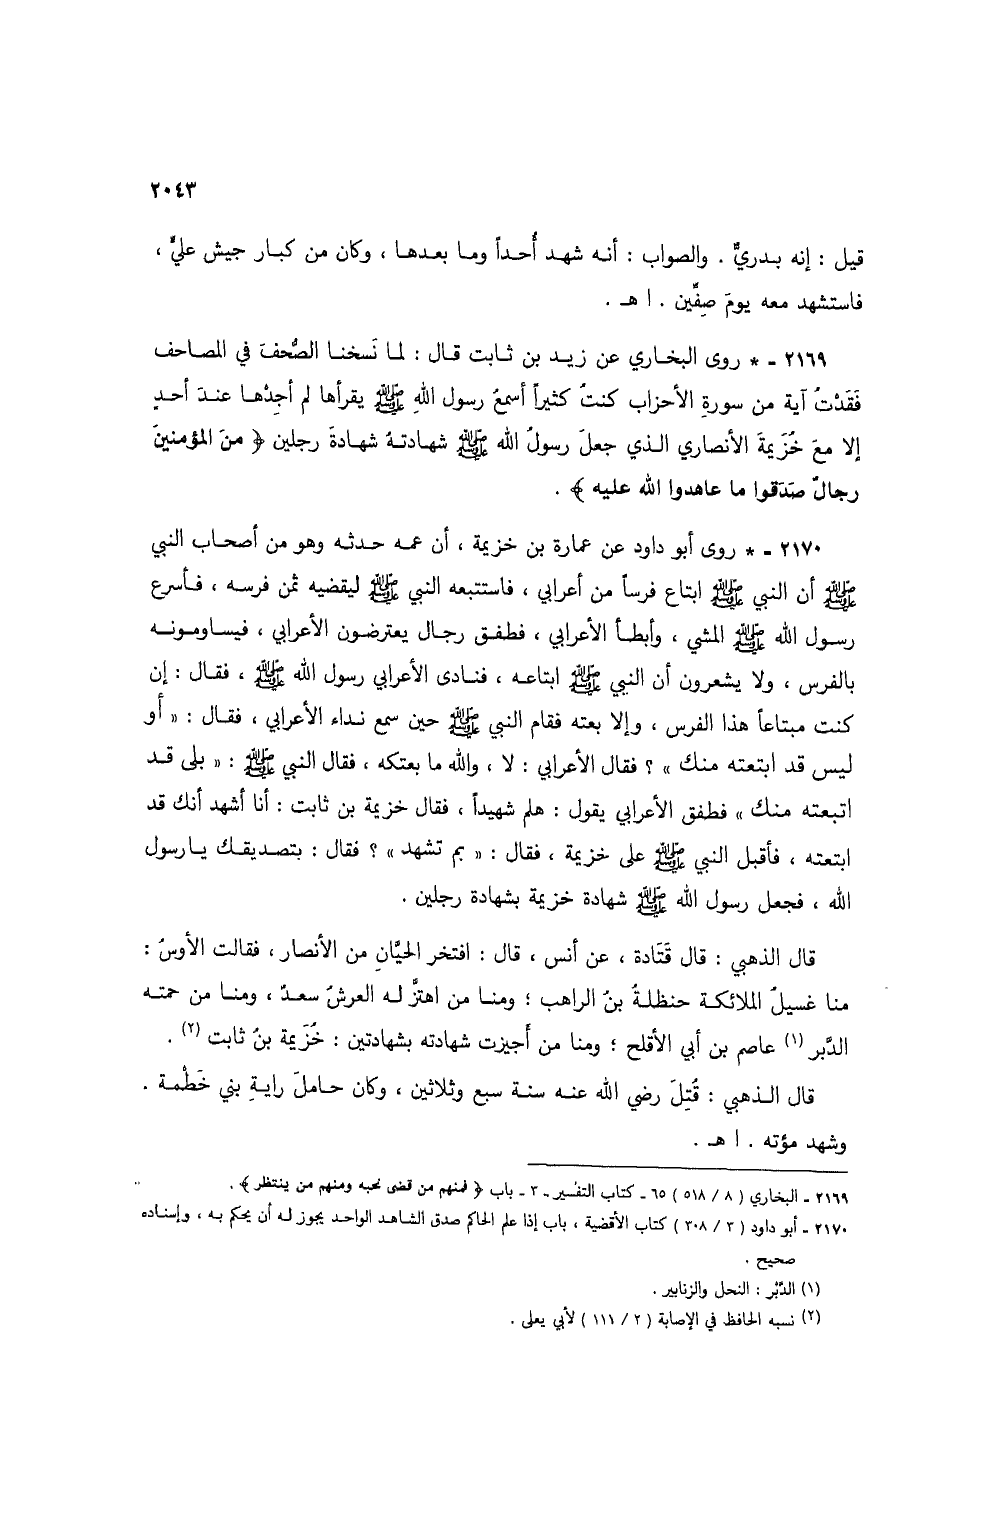 ٢٠٤٣
قيل : إنه بدريٌّ . والصواب : أنه شهد أُحداً وما بعدها ، وكان من كبار جيش عليٍّ ،
فاستشهد معه يومَ صِفِّين . ا هـ .
٢١٦٩ - * روى البخاري عن زيد بن ثابت قال : لما نَسخنا الصُّحفَ في المصاحف
فَقَدْتُ آية من سورةِ الأحزاب كنتُ كثيراً أسمعُ رسول اللهِ ﷺ يقرأها لم أجِدْها عندَ أحدٍ
إلا معَ خُزَيمةَ الأنصاري الذي جعلَ رسولُ الله ﷺ شهادتهُ شهادةَ رجلين ﴿ منَ المؤمنينَ
رجالٌ صَدَقوا ما عاهدوا الله عليه ﴾ .
٢١٧٠ - * روى أبو داود عن عمارة بن خزيمة ، أن عمه حدثه وهو من أصحاب النبي
ﷺ أن النبي ﷺ ابتاع فرساً من أعرابي ، فاستتبعه النبي ﷺ ليقضيه ثمن فرسه ، فأسرع
رسول الله ﷺ المشي ، وأبطأ الأعرابي ، فطفق رجال يعترضون الأعرابي ، فيساومونه
بالفرس ، ولا يشعرون أن النبي ﷺ ابتاعه ، فنادى الأعرابي رسول الله ﷺ ، فقال : إن
كنت مبتاعاً هذا الفرس ، وإلا بعته فقام النبي ﷺ حين سمع نداء الأعرابي ، فقال : « أَو
ليس قد ابتعته منك » ؟ فقال الأعرابي : لا ، والله ما بعتكه ، فقال النبي ﷺ : « بلى قد
اتبعته منك » فطفق الأعرابي يقول : هلم شهيداً ، فقال خزيمة بن ثابت : أنا أشهد أنك قد
ابتعته ، فأقبل النبي ﷺ على خزيمة ، فقال : « بم تشهد » ؟ فقال : بتصديقك يارسول
الله ، فجعل رسول الله ﷺ شهادة خزيمة بشهادة رجلين .
قال الذهبي : قال قَتَادة ، عن أنس ، قال : افتخر الحيَّانِ من الأنصار ، فقالت الأوسُ :
منا غسيلُ الملائكة حنظلةُ بنُ الراهب ؛ ومنا من اهتزَّ له العرشُ سعدٌ ، ومنا من حمته
الدَّبر (١) عاصم بن أبي الأقلح ؛ ومنا من أُجيزت شهادته بشهادتين : خُزَيمة بنُ ثابت (٢) .
قال الذهبي : قُتِلَ رضي الله عنه سنة سبع وثلاثين ، وكان حاملَ رايةِ بني خَطْمة .
وشهد مؤته . ا هـ .
٢١٦٩ - البخاري ( ٨ / ٥١٨ ) ٦٥ - كتاب التفسير - ٣ - باب ﴿ فمنهم من قضى نحبه ومنهم من ينتظر ﴾ .
٢١٧٠ - أبو داود ( ٣ / ٣٠٨ ) كتاب الأقضية ، باب إذا علم الحاكم صدق الشاهد الواحد يجوز له أن يحكم به ، وإسناده
صحيح .
(١) الدَّبْر : النحل والزنابير .
(٢) نسبه الحافظ في الإصابة ( ٢ / ١١١ ) لأبي يعلى .